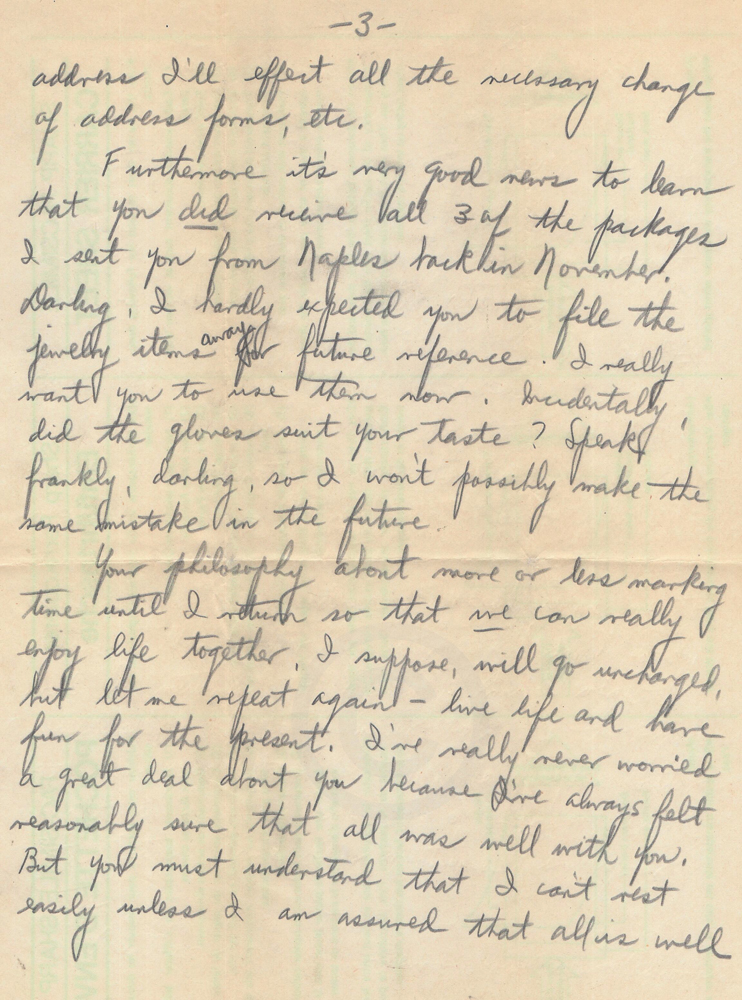 -3-
address I'll effect all the necessary change
of address forms, etc.
Furthermore it's very good news to learn
that you did receive all 3 of the packages
I sent you from Naples back in November.
Darling, I hardly expected you to file the
jewelry items away for future reference. I really
want you to use them now. Incidentally,
did the gloves suit your taste? Speak
frankly, darling, so I won't possibly make the
same mistake in the future.
Your philosophy about more or less marking
time until I return so that we can really
enjoy life together, I suppose, will go unchanged,
but let me repeat again - live life and have
fun for the present. I've really never worried
a great deal about you because I've always felt
reasonably sure that all was well with you.
But you must understand that I can't rest
easily unless I am assured that all is well